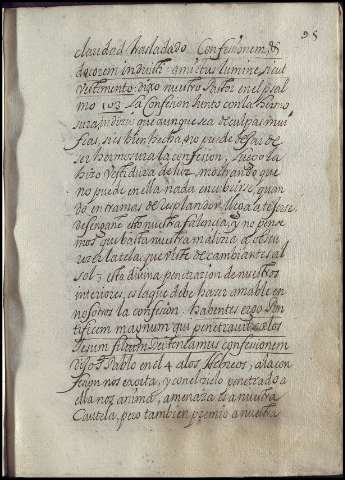 95
claridad trasladado Confesionem, &
decorem induisti: amictus lumine, sicut
vestimento: dixo nuestro Pastor en el psal
mo 103. La Confesion junto con la hermo
sura, indicio que aunque sea de culpas mui
feas, si es bien hecha, no puede dexar de
ser hermosura la confesion, luego la
hizo vestidura de luz, mostrando que
no puede en ella nada encubrirse, quan
do en tramas de resplandor llega a texerse.
desengañe esto nuestra falencia, y no pense
mos que basta nuestra malicia a obscu
recer la tela, que viste de cambiantes al
sol; esta divina penetracion de nuestros
interiores, es la que debe hazer amable en
nosotros la confesion. habentes ergo Pon
tificem magnum qui penetravit cælos
Iesum filium Dei teneamus confesionem
dixo S. Pablo en el 4 a los Hebreos, a la con
fesion nos exorta, y con el zielo penetrado a
ella nos anima, amenaza es a nuestra
Cautela, pero tambien premio a nuestra